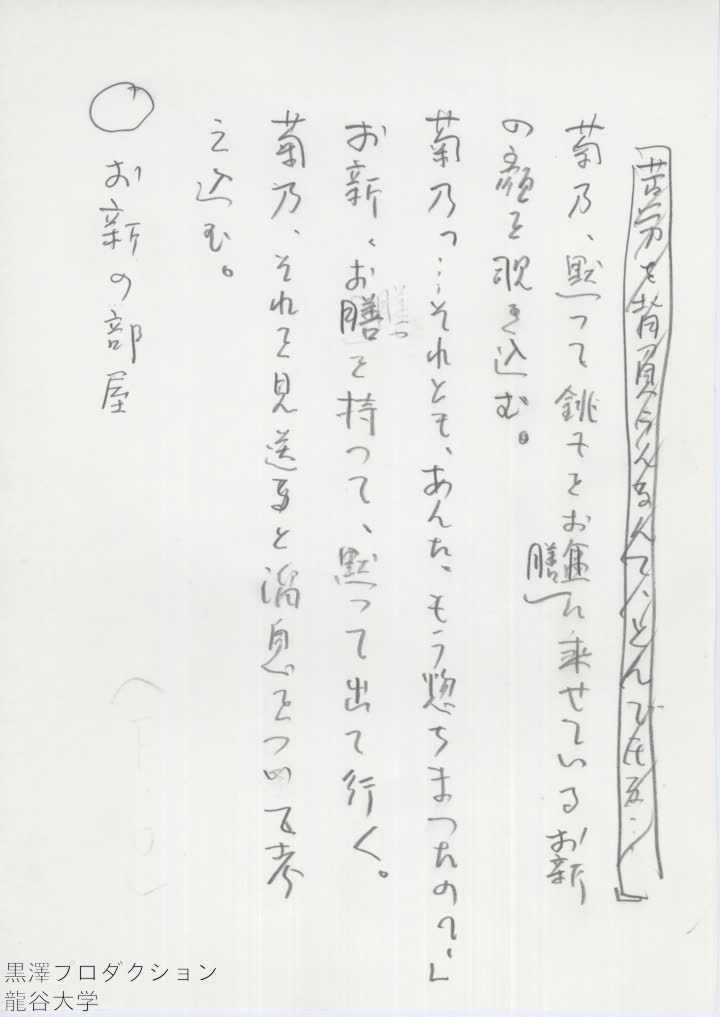 「苦労を背負うんなんて、とんでもない…」
菊乃、黙って銚子をお膳に乗せているお新
の顔を覗き込む。
菊乃「…それとも、あんた、もう惚ちまつたの？」
お新、お膳を持つて、黙って出て行く。
菊乃、それを見送ると溜息をついて考
え込む。
○ お新の部屋
黒澤プロダクション
龍谷大学